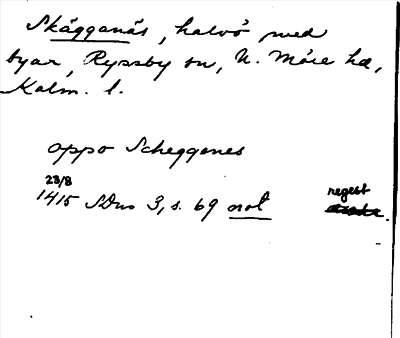 Skägganäs, halvö med
byar, Ryssby sn, N. Möre hd,
Kalm. l.
oppo Scheggenes
23/8
1415 SDns 3, s. 69 not regest